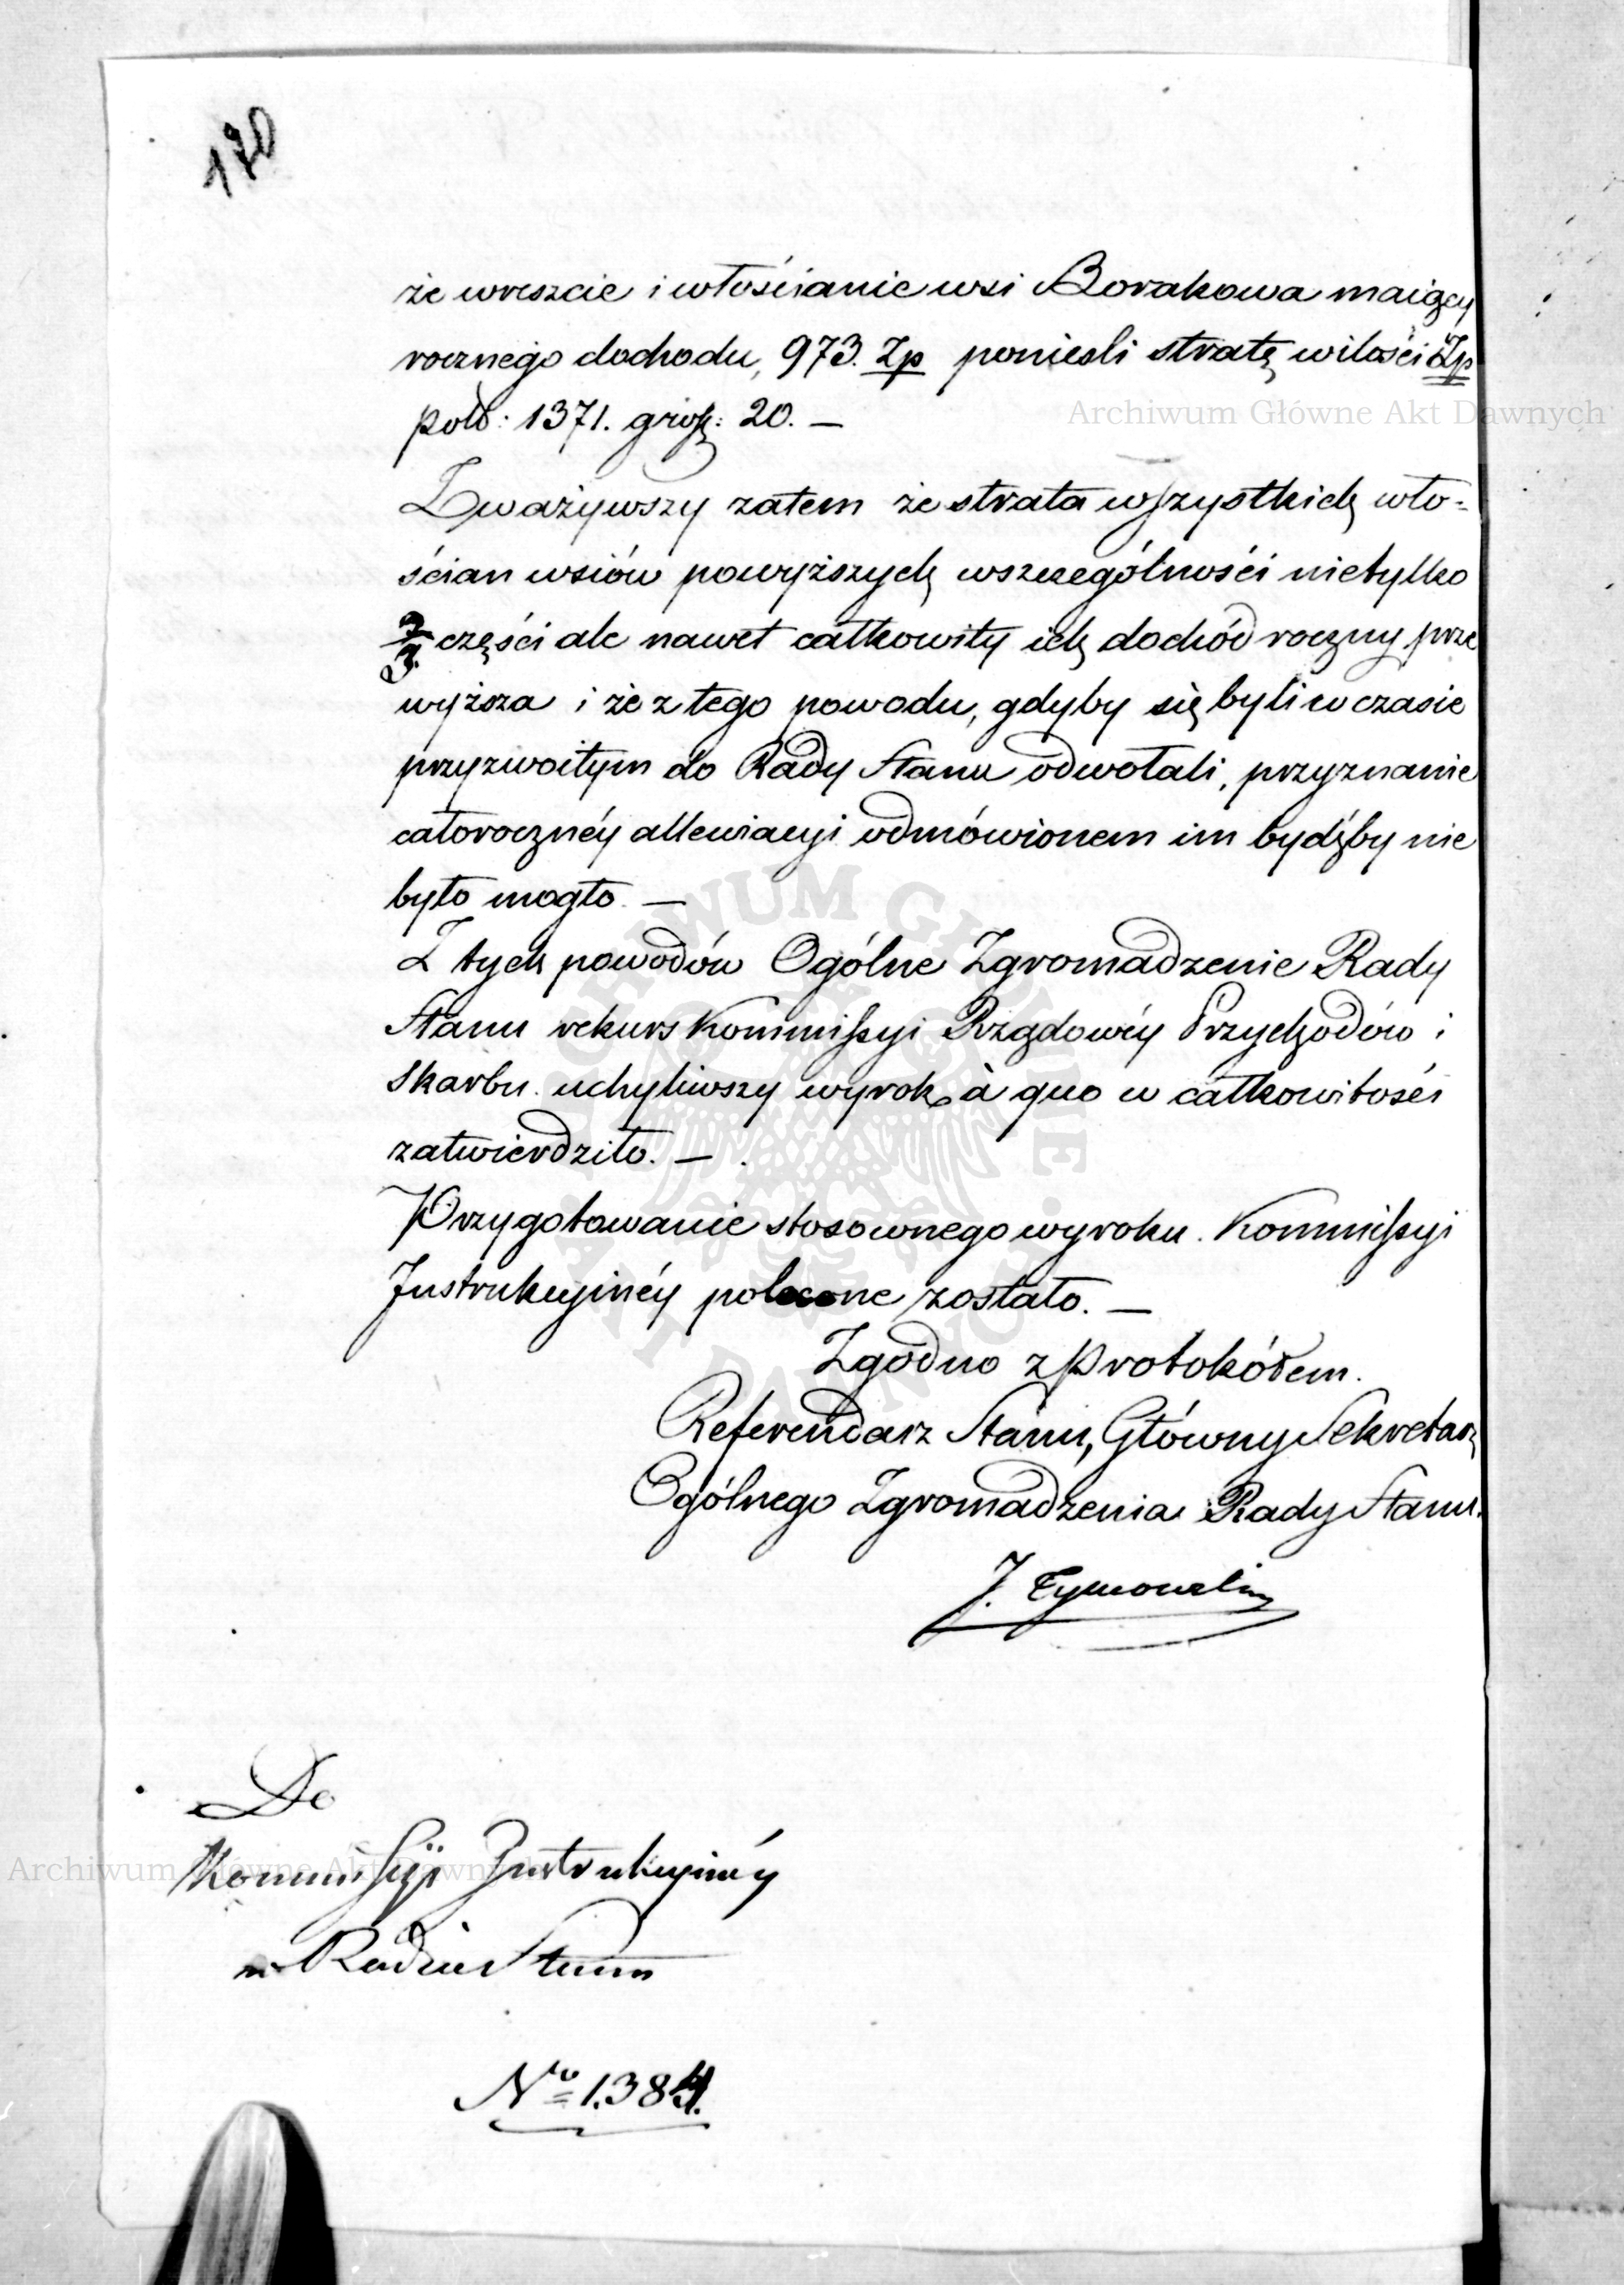 120
że wreszcie i włościanie wsi Borakowa maiący
rocznego dochodu, 973. Zp ponieśli stratę w ilości Zp
pols: 1371. grosz: 20. —
Archiwum Główne Akt Dawnych
Zważywszy zatem że strata wszystkich wło-
ścian wsiów powyższych wszczególności nietylko
2/3 części ale nawet całkowity ich dochód roczny prze
wyższa i że z tego powodu, gdyby się byli w czasie
przyzwoitym do Rady Stanu odwołali, przyznanie
całorocznéy allewiacyi odmówionem im bydźby nie
było mogło. —
Z tych powodów Ogólne Zgromadzenie Rady
Stanu rekurs Kommissyi Rządowéy Przychodów i
Skarbu uchyliwszy wyrok à quo w całkowitości
zatwierdziło. —
Przygotowanie stosownego wyroku Kommissyi
Instrukcyinéy polecone zostało. —
Zgodno z Protokółem.
Referendarz Stanu, Główny Sekretarz
Ogólnego Zgromadzenia Rady Stanu.
J. Tymowski
Do
Kommissyi Instrukcyinéy
w Radzie Stanu
Archiwum Główne Akt Dawnych
No 1384.